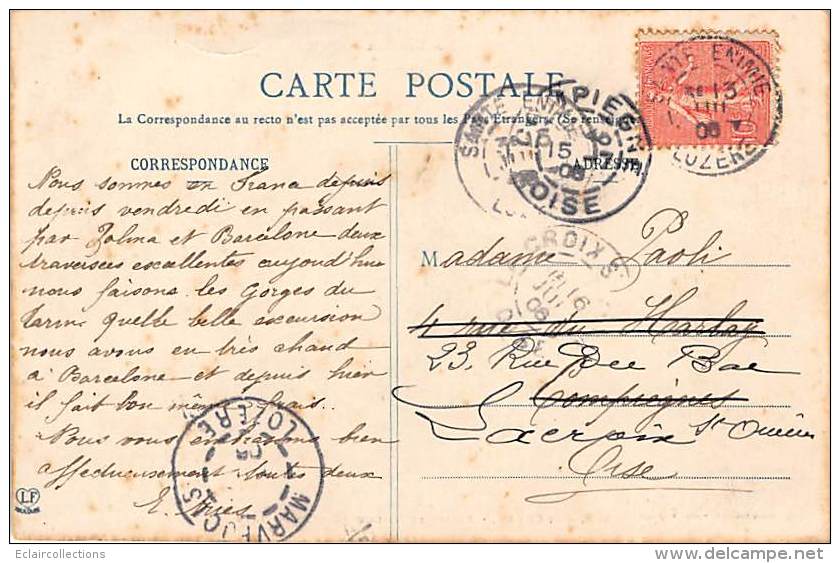 CARTE POSTALE
La Correspondance au recto n'est pas acceptée par tous les Pays Etrangers (Se renseigner
CORRESPONDANCE
ADRESSE
Nous sommes en France depuis
depuis vendredi en passant
par Palma et Barcelone deux
traversées excellentes aujourd'hui
nous faisons les Gorges du
Tarn quelle belle excursion
nous avons eu très chaud
à Barcelone et depuis hier
il fait bon même frais.
Nous vous embrassons bien
affectueusement toutes deux
E.
Madame Paoli
4 rue du Harlay
23, Rue Du Bac
Compiègne
Lacroix St Ouen
Oise
STE ENIMIE
13
06
LOZERE
OISE
15
LACROIX S
16
06
MARVEJOLS
LOZERE
LF
Eclaircollections
delcampe.net